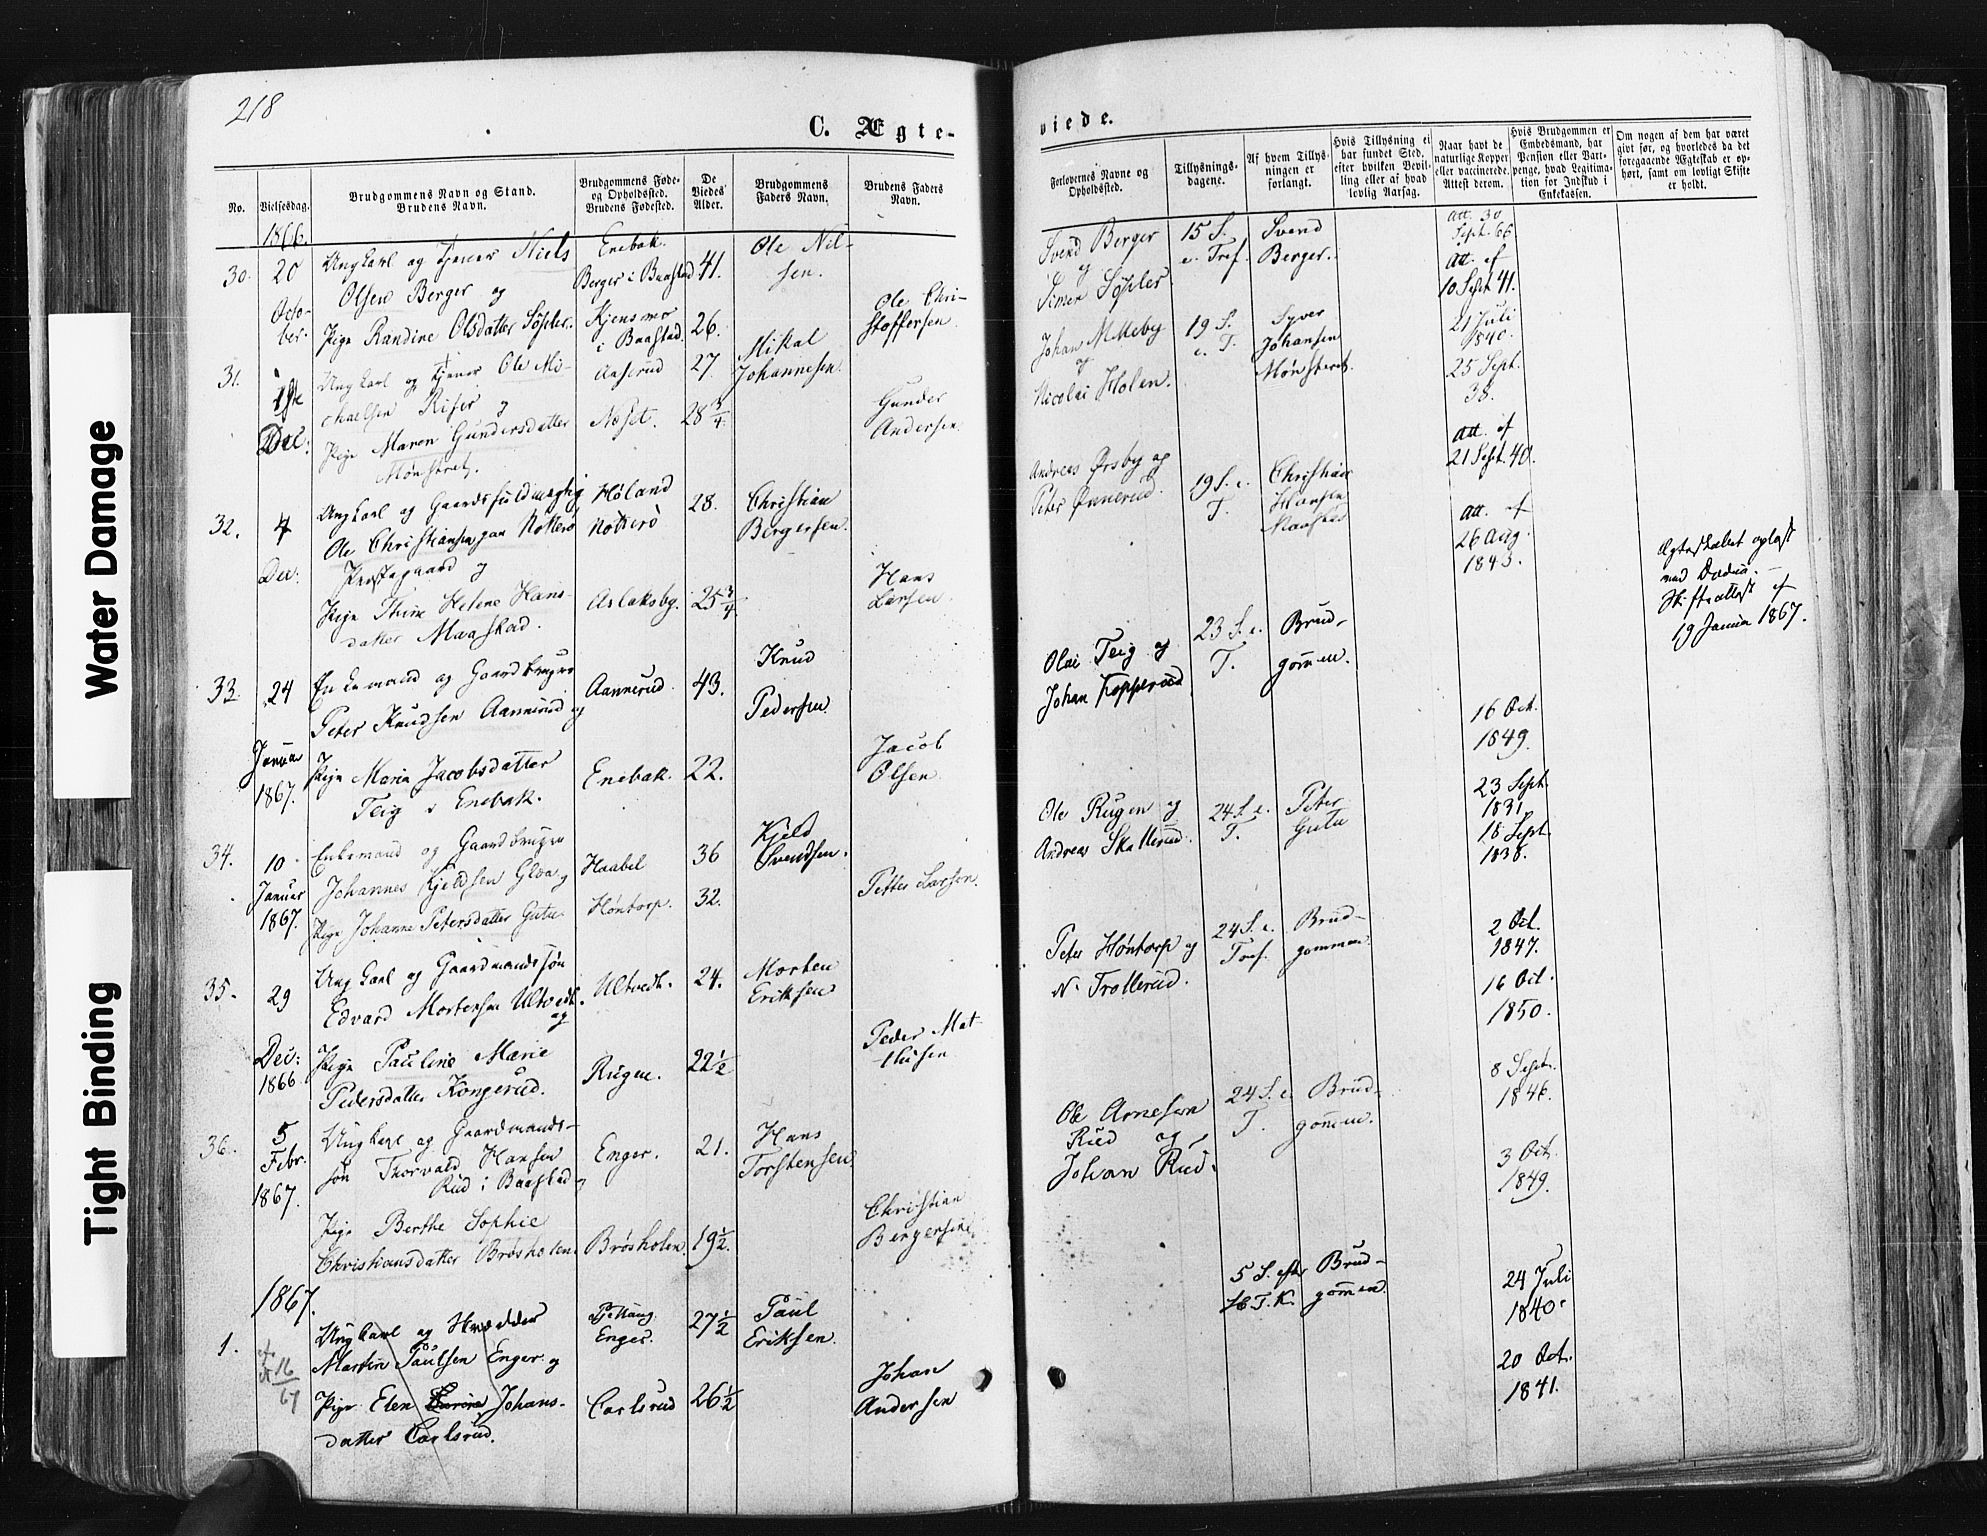 218
C. Ægte-
No.
Vielsesdag.
Brudgommens Navn og Stand.
Brudens Navn.
Brudgommens Føde-
og Opholdssted.
Brudens Fødested.
De
Viedes
Alder.
Brudgommens
Faders Navn.
Brudens Faders
Navn.
1866.
30.
20
Octo-
ber.
Ungkarl og tjener Niels
Olsen Berger og
Pige Randine Olsdatter Søpler.
Enebak.
Berger i Baastad
Kjensmo
i Baastad.
41.
26.
Ole Nil-
sen.
Ole Chri-
stoffersen.
31.
1ste
Dec:
Ungkarl og tjener Ole Mi-
og
Pige Maren Gundersdatter
Næset.
27
28 3/4
Mikal
Johannesen.
Gunder
Andersen.
32.
4
Dec:
Ungkarl og Gaardsfuldmægtig
Ole Christiansen paa
Præstegaard og
Pige Thrine Helene Hans-
datter Maastad.
Høland
Aslaksby.
28.
25 3/4
Christian
Bergersen.
Hans
Larsen.
33.
24
Januar
1867.
Enkemand og Gaardbruger
Peter Knudsen Aannerud og
Pige Maria Jacobsdatter
Teig i Enebak.
Aannerud.
Enebak.
43.
22.
Knud
Pedersen
Jacob
Olsen.
34.
10
Januar
1867.
Enkemand og Gaardbruger
Johannes Kjeldsen Gloa og
Pige Johanne Petersdatter Gutu
Haabel
Høntorp.
36
32.
Kjeld
Svendsen.
Petter Larsen.
35.
29
Dec:
1866
Ungkarl og Gaardmandssøn
Edvard Mortensen Ultvedt.
og
Pige Pauline Marie
Pedersdatter Kongerud.
Ultvedt.
Rugen.
24.
22 1/2
Morten
Eriksen
Peder Mat
thisen
36.
5
Febr.
1867.
Ungkarl og Gaardmands-
søn Thorvald Hansen
Rud i Baastad og
Pige Berthe Sophie
Christiansdatter Brøsholen
Enger.
Brøsholen.
21.
19 1/2.
Hans
Torstensen
Christian
Bergersen
1867.
1.
16
67
Ungkarl og
Martin Paulsen Enger og
Pige Elen Johans-
datter Carlsrud.
Enger.
Carlsrud
27 1/2
26 1/2
Paul
Eriksen.
Johan
Andersen
viede.
Forlovernes Navne og
Opholdssted.
Tillysnings-
dagene.
Af hvem Tillys-
ningen er
forlangt.
Hvis Tillysning ei
har fundet Sted,
efter hvilken Bevil-
ling eller af hvad
lovlig Aarsag.
Naar havt de
naturlige Kopper
eller vaccinerede.
Attest derom.
Hvis Brudgommen er
Embedsmand, har
Pension eller Vart-
penge, hvad Legitima-
tion for Indskud i
Enkekassen.
Om nogen af dem har været
givt før, og hvorledes da det
foregaaende Ægteskab er op-
hørt, samt om lovligt Skifte
er holdt.
Svend Berger
og
Simen Søpler.
15 S.
e. Tref.
Svend
Berger.
att. 30
Sept. 66
att. af
10 Sept 41.
Johan Mæleby
og
Nicolai Holen.
19 S.
e. T.
Syver
Johansen
21 Juli
1840.
25 Sept.
38.
Andreas Ørsby og
Peter Ønnerud.
19 S. e.
T.
Christian
Hansen
Maastad
att. af
21 Sept. 40.
att. af
26 Aug.
1843.
Olai Teig og
Johan Kopperud
23 S. e.
T.
Brud-
gommen.
16 Oct.
1849.
Ægteskabet opløst
ved Døden.
Skifteattest af
19 Januar 1867.
Ole Rugen og
Andreas Skallerud.
24 S. e.
T.
Peter
Gutu
23 Sept.
1831
15 Sept.
1838.
Peter Høntorp og
N. Trollerud.
24 S. e.
Tref.
Brud-
gommen
2 Oct.
1847.
16 Oct.
1850.
Ole Arnesen
Rud og
Johan Rud.
24 S. e.
T.
Brud-
gommen.
8 Sept.
1846.
3 Oct.
1849.
5 S. efter
H. T. K.
Brud-
gommen.
24 Juli
1840.
20 Oct.
1841.
Water Damage
Tight Binding